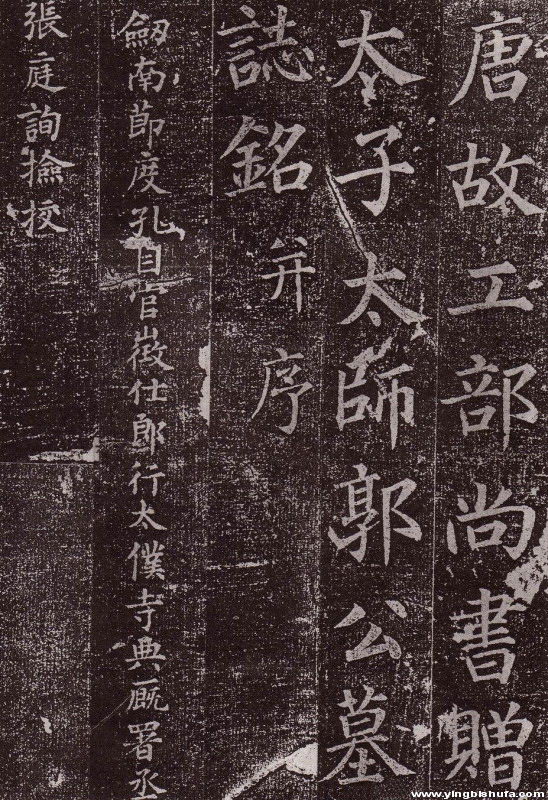 唐故工部尚書贈
太子太師郭公墓
誌銘并序
劒南節度孔目官徵仕郎行太僕寺典廐署丞
張庭詢撿挍
www.yingbishufa.com